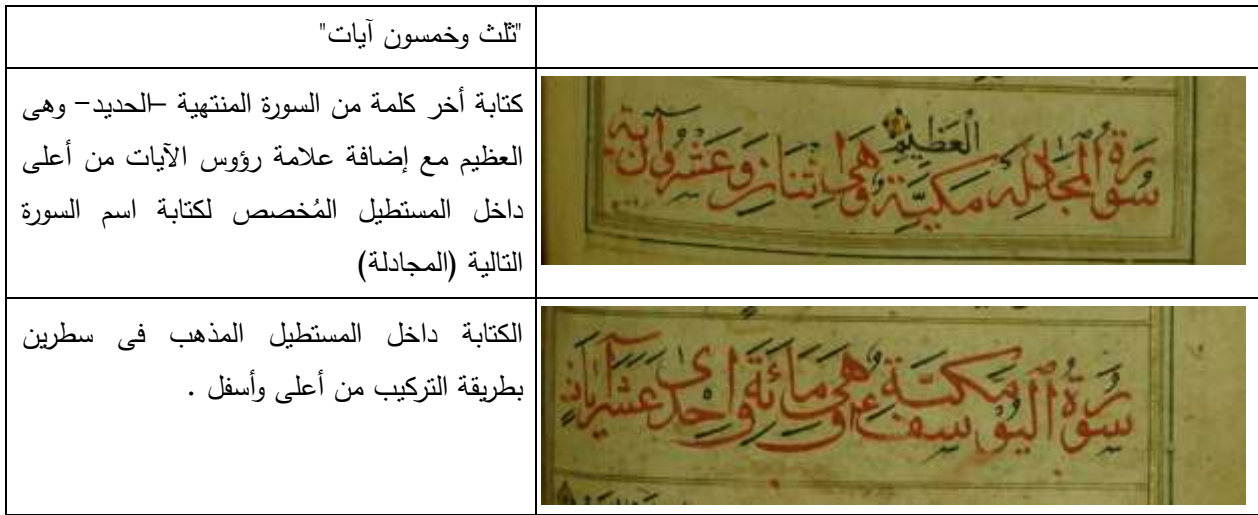 "ثلث وخمسون آيات"
كتابة أخر كلمة من السورة المنتهية –الحديد– وهى
العظيم مع إضافة علامة رؤوس الآيات من أعلى
داخل المستطيل المُخصص لكتابة اسم السورة
التالية (المجادلة)
العَظِيمِ
سُورَةُ المُجَادِلَه مَكيَّةٌ وَهِىَ اثْنَان وَعَشْرُون آيَة
الكتابة داخل المستطيل المذهب فى سطرين
بطريقة التركيب من أعلى وأسفل .
سُورَةُ اليُوسف مَكيَّة وَهِىَ مَائَة وَاحْدَى عَشَر آيَات